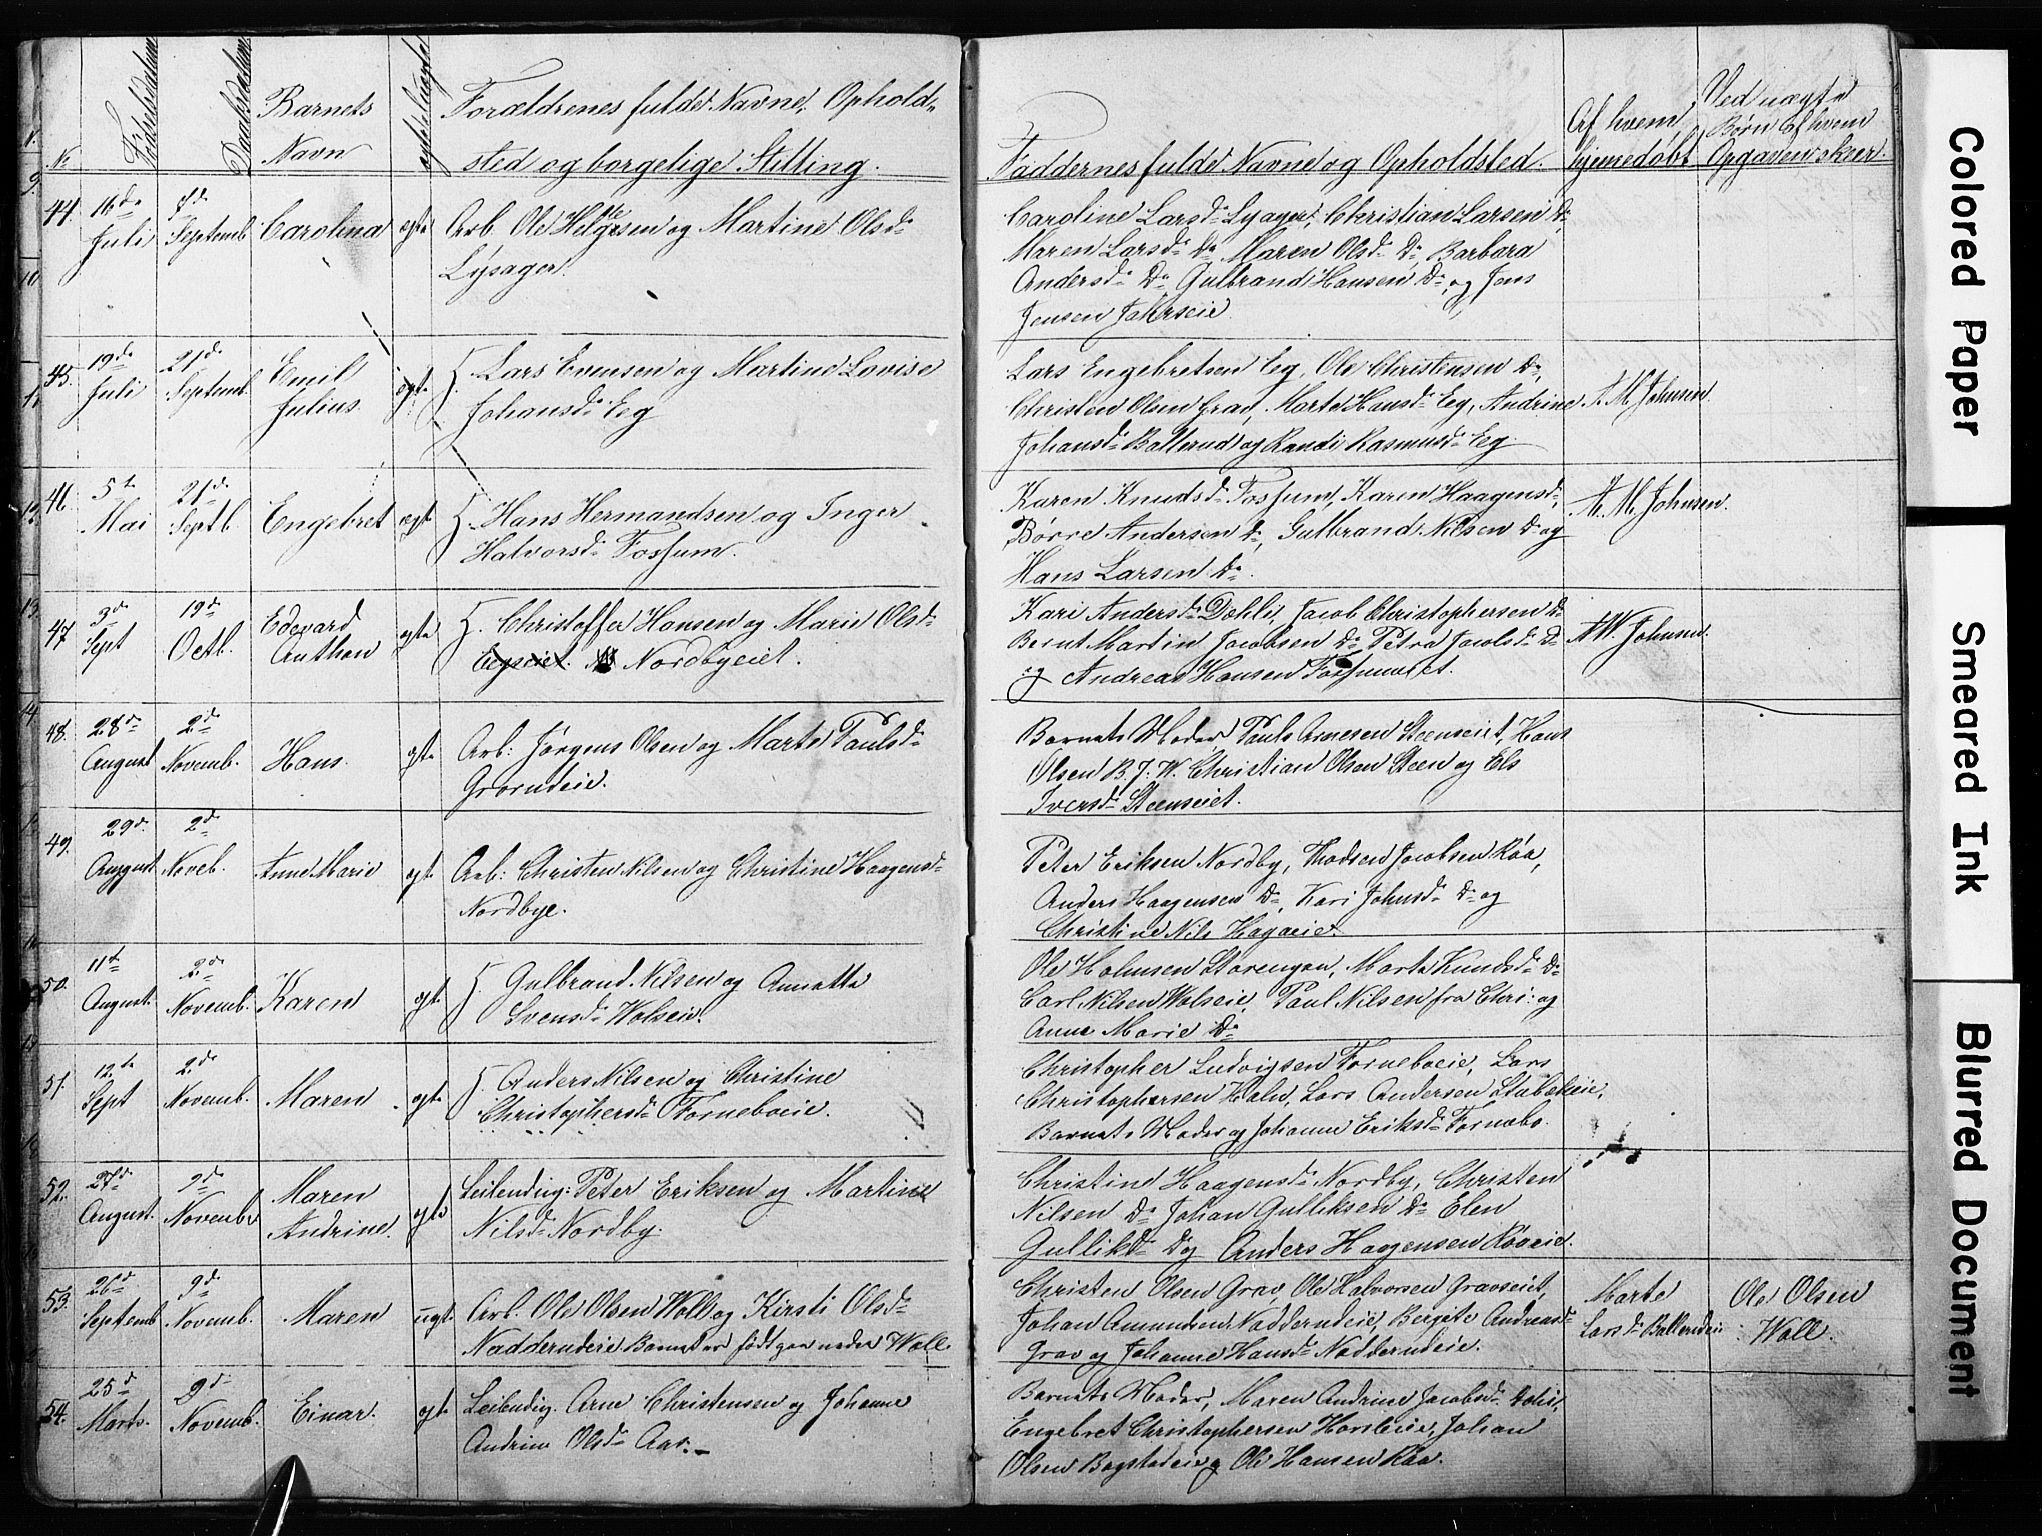 No
Fødselsdatum
Daabsdatum
Barnets
Navn
Forældrenes fulde Navne, Ophold-
sted og borgelige Stilling.
Faddernes fulde Navne og Opholdsted.
Af hvem
hjemmedøbt
Ved uægte
Børn af hvem
Opgaven skeer.
44. 16de Juli
Septemb.
Carolina
ægte
Arb. Ole Helgesen og Martine Olsd.
Lysager.
Caroline Larsd. Lysager, Christian Larsen Do,
Maren Larsd. Do Maren Olsd. Do Barbara
Andersd. Do, Gulbrand Hansen Do, og Jens
Jensen Jahrseie
45. 19de Juli
21de Septemb.
Emil
Julius
ægte
Lars Evensen og Martine Lovise
Johansd. Eeg
Lars Engebretsen Eeg, Ole Christensen Do,
Christen Olsen Grav, Marte Hansd. Eeg, Andrine
Johansd. Ballerud og Randi Rasmusd. Eeg.
A. M. Johnsen.
46. 5te Mai
21de Septb.
Engebret
ægte
Hans Hermandsen og Inger
Halvorsd. Fossum.
Karen Knudsd. Fossum, Karen Haagensd.
Børre Andersen do, Gulbrand Nilsen Do og
Hans Larsen Do.
A. M. Johnsen.
47. 3de Sept
19de Octb.
Edevard
Anthon
ægte
Christoffer Hansen og Marie Olsd.
Eegseiet. Nordbyeiet.
Kari Andersd. Dehli, Jacob Christophersen Do
Bernt Martin Jacobsen Do Petra Jacobsd. Do
og Andreas Hansen Fossumeiet.
Johnsen.
48. 28de August
2de Novemb.
Hans.
ægte
Arb: Jørgens Olsen og Marte Paulsd.
Grorudeie.
Barnets Moder, Paul Arnesen Steenseiet, Hans
Olsen B. J. W. Christian Olsen Steen og Els
Iversd. Steenseiet.
49. 29de August
2de Noveb.
Anne Marie
ægte
Arb: Christen Nilsen og Christine Haagensd.
Nordbye.
Peter Eriksen Nordby, Madsen Jacobsen Røa,
Anders Haagensen Do, Kari Johnsd. Do og
Christine Nils Hagaeie.
50. 11te August.
2de Novemb.
Karen
ægte
Gulbrand Nilsen og Annette
Svensd. Wolseie.
Ole Holmsen Storengen, Marte Knudsd. Do
Carl Nilsen Wolseie, Paul Nilsen fra Chri: og
Anne Marie Do
51. 12te Sept
2de Novemb.
Maren
ægte
Anders Nilsen og Christine
Christophersd. Forneboeie.
Christopher Ludvigsen Forneboeie, Lars
Christophersen Holn, Lars Andersen Stabekeie,
Barnets Moder og Johanne Eriksd. Fornebo.
52. 27de August.
9de Novembr
Maren
Andrine.
ægte
Leilendig: Peter Eriksen og Martine
Nilsd. Nordby.
Christine Haagensd. Nordby, Christen
Nilsen Do Johan Gulliksen Do Elen
Gullikd. Do og Anders Haagensen Røaeie.
53. 26de Septemb
9de Novemb.
Maren
uægte
Arb. Ole Olsen Woll og Kirsti Olsd.
Nadderudeie Barnet er født paa neder Woll.
Christen Olsen Grav, Ole Halvorsen Gravseiet,
Johan Amundsen Nadderudeie, Bergete Andreasd.
Grav og Johanne Hansd. Nadderudeie.
Marte
Larsd. Ballerudeie
Ole Olsen
Woll.
54. 25de Marts.
9de Novemb.
Einar.
ægte
Leilendig. Arne Christensen og Johanne
Andrine Olsd. Aas.
Barnets Moder, Maren Andrine Jacobsd. Dehli,
Engebret Christophersen Horsleie, Johan
Olsen Bogstadeie og Ole Hansen Røa.
Colored Paper
Smeared Ink
Blurred Document